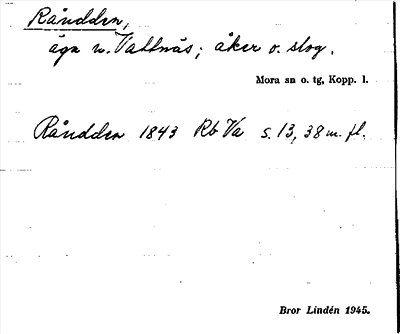 Råndden,
äga n. Vattnäs; åker o. slog.
Mora sn o. tg, Kopp. l.
Råndden 1843 Rb Va s. 13, 38 m. fl.
Bror Lindén 1945.